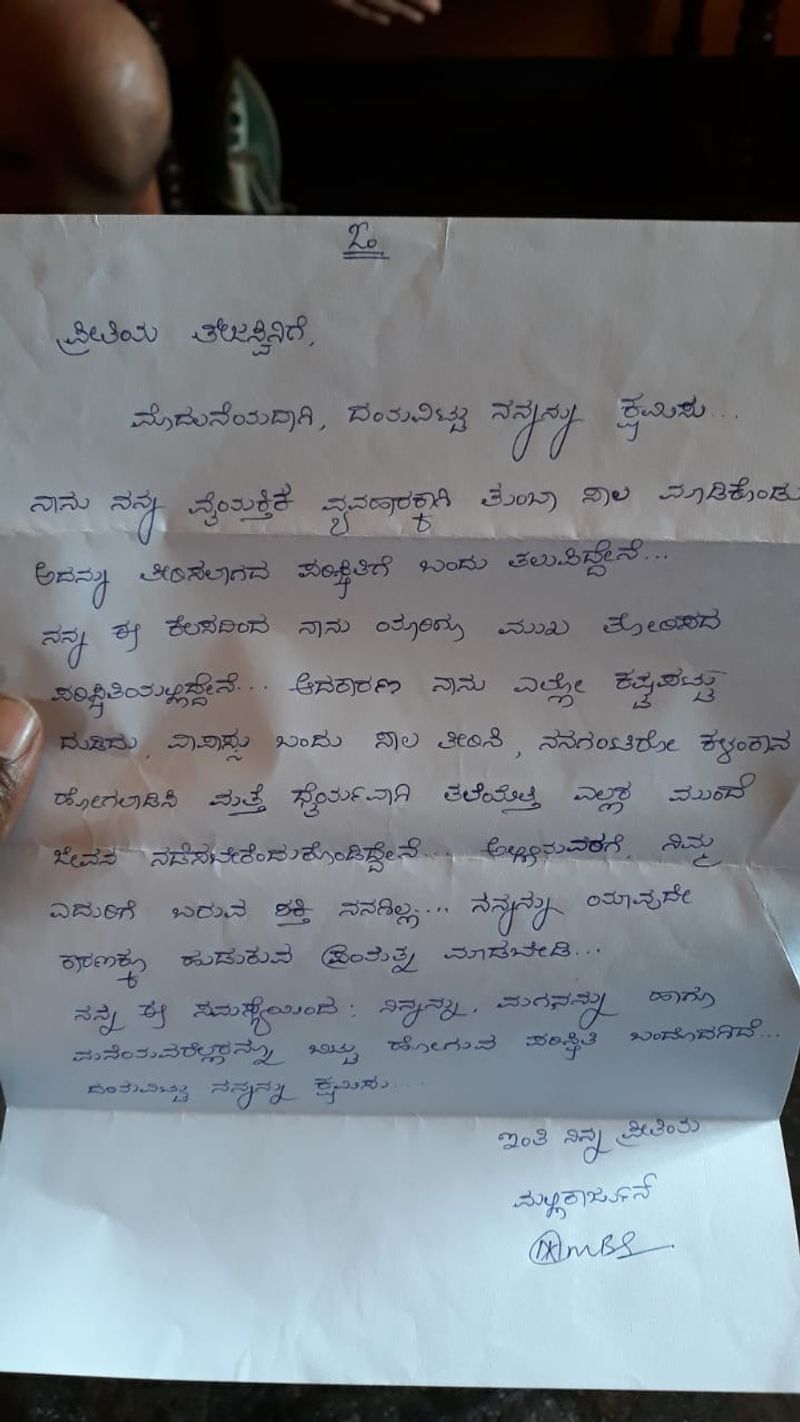 ಓಂ
ಪ್ರೀತಿಯ ತೇಜಸ್ವಿನಿಗೆ,
ಮೊದಲನೆಯದಾಗಿ, ದಯವಿಟ್ಟು ನನ್ನನ್ನು ಕ್ಷಮಿಸು...
ನಾನು ನನ್ನ ವೈಯಕ್ತಿಕ ವ್ಯವಹಾರಕ್ಕಾಗಿ ತುಂಬಾ ಸಾಲ ಮಾಡಿಕೊಂಡು
ಅದನ್ನು ತೀರಿಸಲಾಗದ ಪರಿಸ್ಥಿತಿಗೆ ಬಂದು ತಲುಪಿದ್ದೇನೆ...
ನನ್ನ ಈ ಕೆಲಸದಿಂದ ನಾನು ಯಾರಿಗೂ ಮುಖ ತೋರಿಸದ
ಪರಿಸ್ಥಿತಿಯಲ್ಲಿದ್ದೇನೆ... ಆದಕಾರಣ ನಾನು ಎಲ್ಲೋ ಕಷ್ಟಪಟ್ಟು
ದುಡಿದು, ವಾಪಾಸ್ಸು ಬಂದು ಸಾಲ ತೀರಿಸಿ, ನನಗಂಟಿರೋ ಕಳಂಕಾನ
ಹೋಗಲಾಡಿಸಿ ಮತ್ತೆ ಧೈರ್ಯವಾಗಿ ತಲೆಯೆತ್ತಿ ಎಲ್ಲರ ಮುಂದೆ
ಜೀವನ ನಡೆಸಬೇಕೆಂದುಕೊಂಡಿದ್ದೇನೆ... ಅಲ್ಲೀನುವರಗೆ, ನಿಮ್ಮ
ಎದುರಿಗೆ ಬರುವ ಶಕ್ತಿ ನನಗಿಲ್ಲ... ನನ್ನನ್ನು ಯಾವುದೇ
ಕಾರಣಕ್ಕೂ ಹುಡುಕುವ ಪ್ರಯತ್ನ ಮಾಡಬೇಡಿ...
ನನ್ನ ಈ ಸಮಸ್ಯೆಯಿಂದ; ನಿನ್ನನ್ನು, ಮಗನನ್ನು ಹಾಗೂ
ಮನೆಯವರೆಲ್ಲರನ್ನೂ ಬಿಟ್ಟು ಹೋಗುವ ಪರಿಸ್ಥಿತಿ ಬಂದೊದಗಿದೆ...
ದಯವಿಟ್ಟು ನನ್ನನ್ನು ಕ್ಷಮಿಸು...
ಇಂತಿ ನಿನ್ನ ಪ್ರೀತಿಯ
ಮಲ್ಲಿಕಾರ್ಜುನ